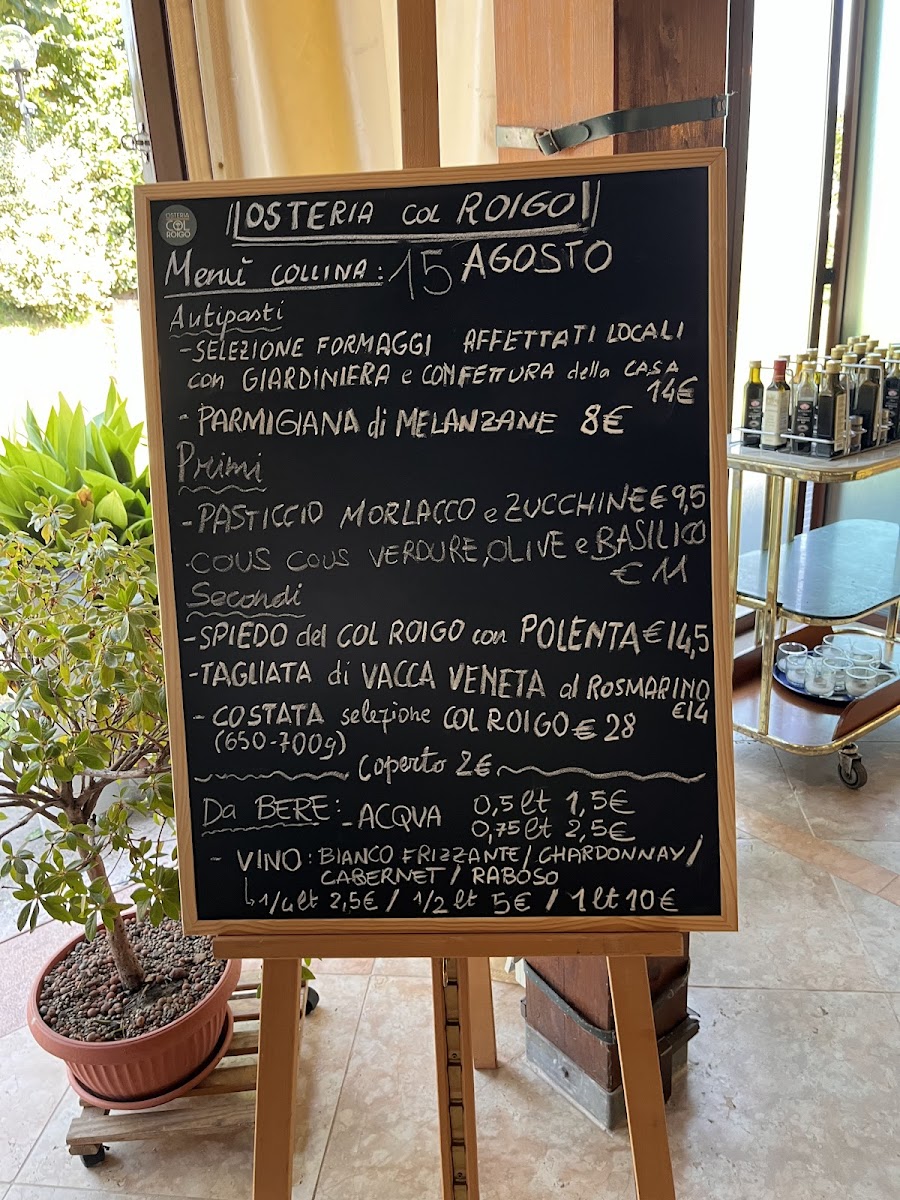 OSTERIA COL ROIGO
OSTERIA COL ROIGO
Menù COLLINA: 15 AGOSTO
Antipasti
- SELEZIONE FORMAGGI AFFETTATI LOCALI
con GIARDINIERA e CONFETTURA della CASA
14€
- PARMIGIANA di MELANZANE 8€
Primi
- PASTICCIO MORLACCO e ZUCCHINE € 9,5
- COUS COUS VERDURE, OLIVE e BASILICO
€ 11
Secondi
- SPIEDO del COL ROIGO con POLENTA € 14,5
- TAGLIATA di VACCA VENETA al ROSMARINO
€ 14
- COSTATA selezione COL ROIGO € 28
(650-700g)
Coperto 2€
Da BERE: - ACQUA 0,5 lt 1,5€
0,75 lt 2,5€
- VINO: BIANCO FRIZZANTE / CHARDONNAY /
CABERNET / RABOSO
1/4 lt 2,5€ / 1/2 lt 5€ / 1 lt 10€